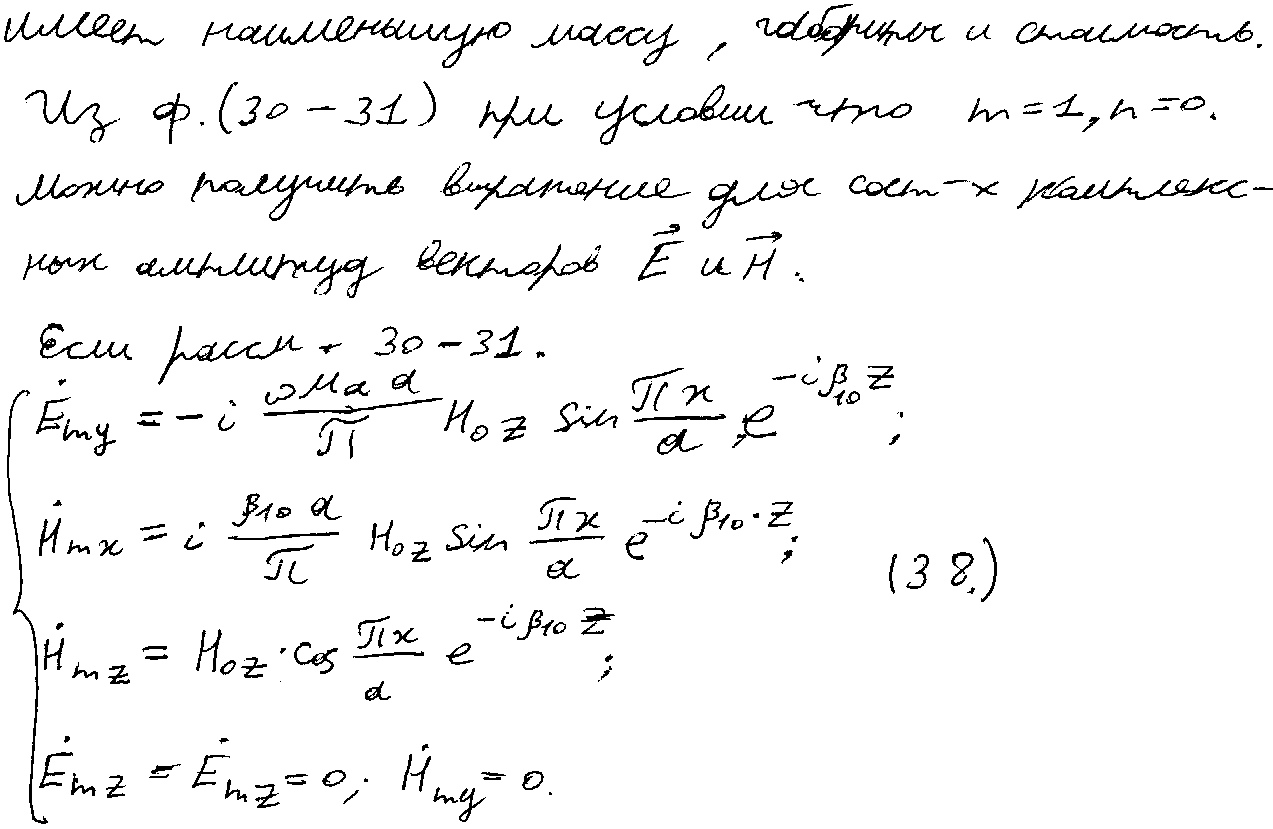 имеет наименьшую массу, габариты и стоимость.
Из ф.(30-31) при условии что m=1, n=0.
можно получить выражение для сост-х комплекс-
ных амплитуд векторов E⃗ и H⃗.
Если рассм. 30-31.
Ė_my = -i (ωμ_a a)/π H_oz sin (πx)/a e^(-iβ_10 z);
Ḣ_mx = i (β_10 a)/π H_oz sin (πx)/a e^(-iβ_10·z);
(38.)
Ḣ_mz = H_oz·cos (πx)/a e^(-iβ_10 z);
Ė_mz = Ė_mz = 0; Ḣ_my = 0.